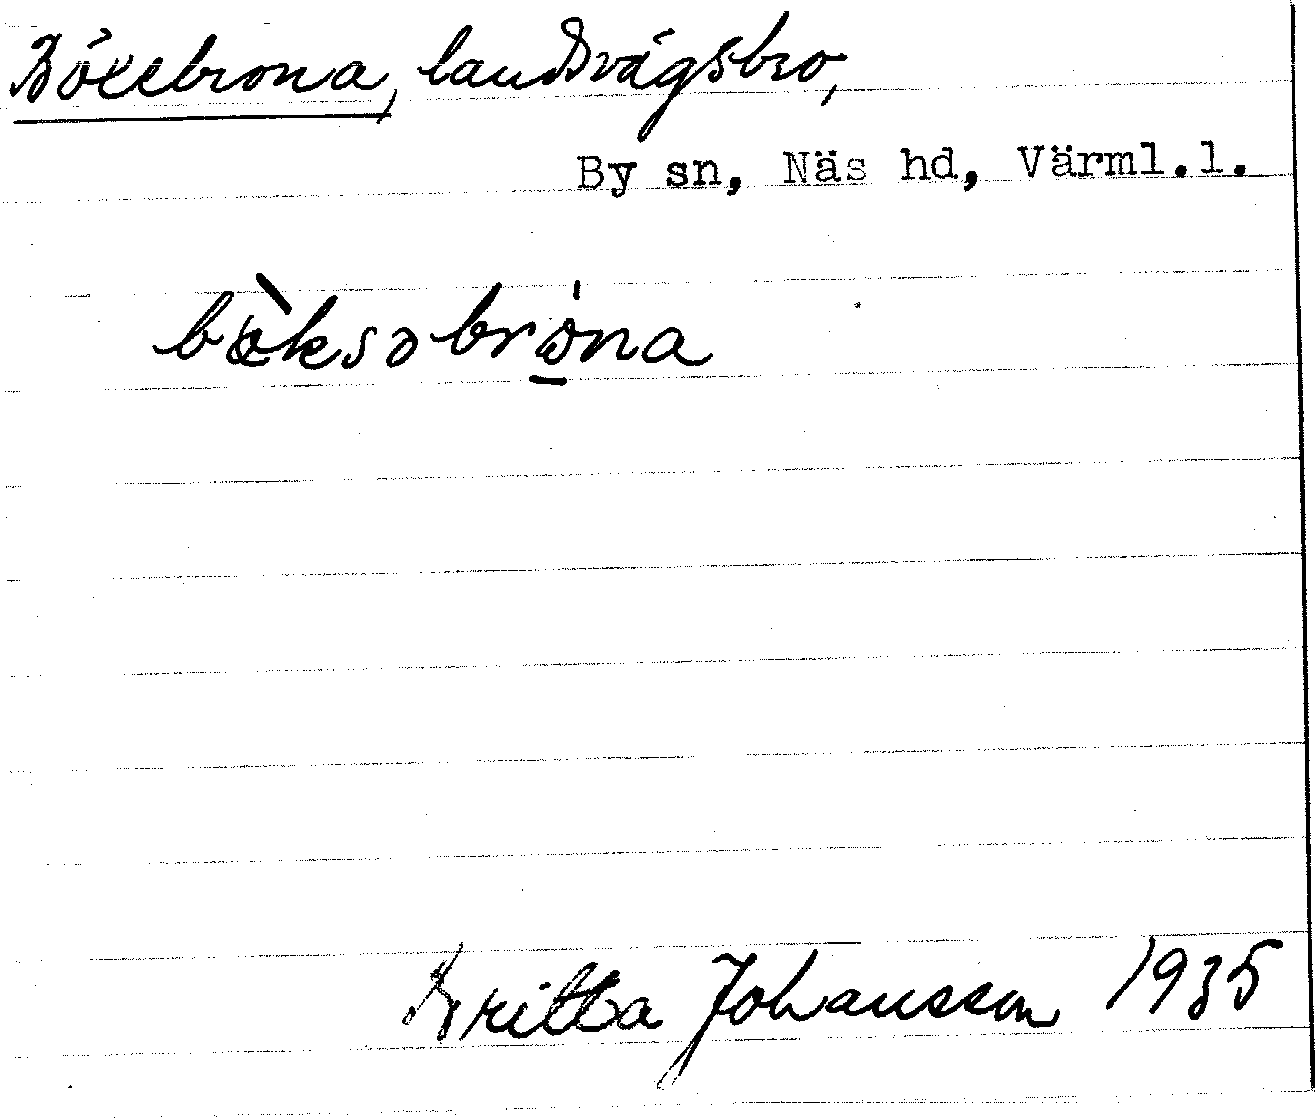 Böxebrona, landsvägsbro,
By sn, Näs hd, Värml.l.
bö̀ksobrona
Britta Johansson 1935